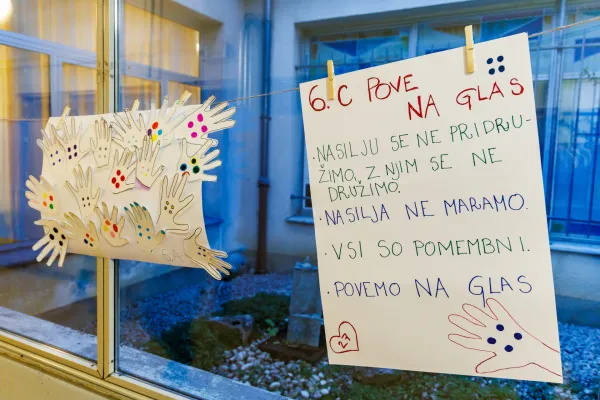 6. C POVE
NA GLAS
• NASILJU SE NE PRIDRU-
ŽIMO, Z NJIM SE NE
DRUŽIMO.
• NASILJA NE MARAMO.
• VSI SO POMEMBNI.
• POVEMO NA GLAS